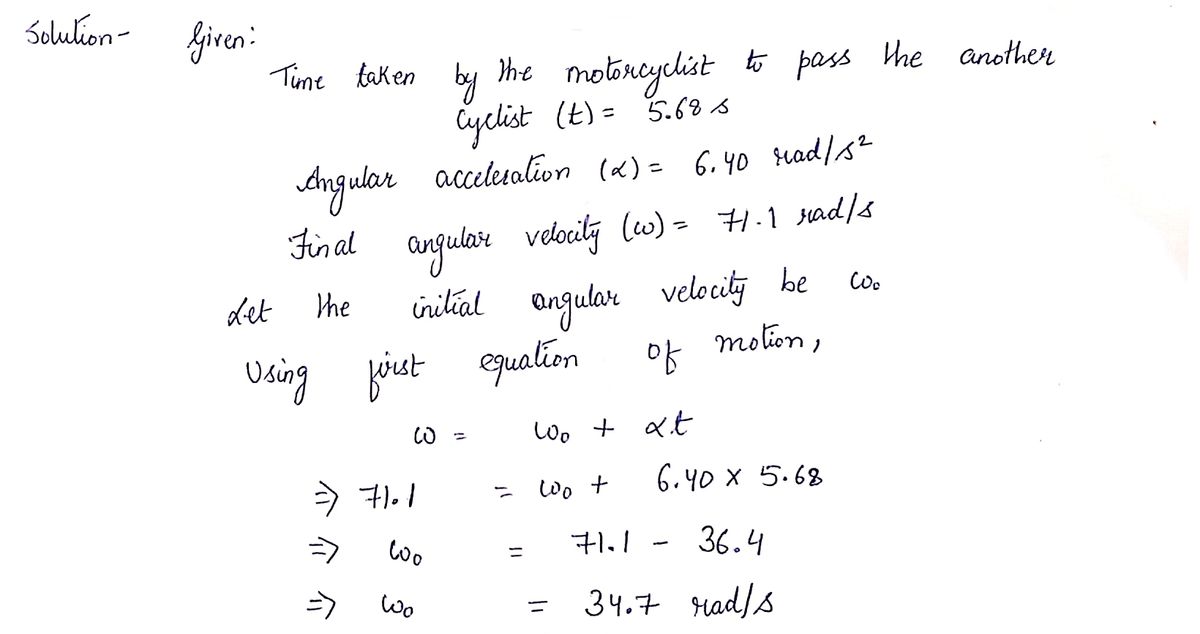 Solution- Given:
Time taken by the motorcyclist to pass the another
Cyclist (t) = 5.68 s
Angular acceleration (α) = 6.40 rad/s²
Final angular velocity (ω) = 71.1 rad/s
Let the initial angular velocity be ω₀
Using first equation of motion,
ω = ω₀ + α.t
⇒ 71.1 = ω₀ + 6.40 × 5.68
⇒ ω₀ = 71.1 - 36.4
⇒ ω₀ = 34.7 rad/s